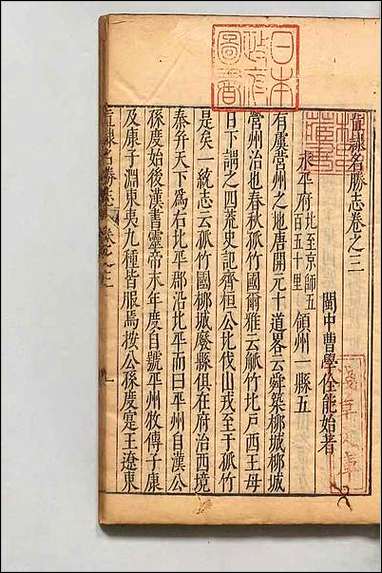 日本
政府
圖書
直隸名勝志卷之三
閩中曹學佺能始著
永平府 北至京師五
百五十里 領州一縣五
有虞營州之地唐開元十道畧云舜築柳城柳城
營州治也春秋孤竹國爾雅云觚竹北戶西王母
日下謂之四荒史記齊桓公北伐山戎至于孤竹
是矣一統志云孤竹國柳城廢縣俱在府治西境
秦并天下為右北平郡沿北平而曰平州自漢公
孫度始後漢書靈帝末年度自號平州牧傳子康
及康子淵東夷九種皆服焉按公孫度寔王遼東
直隸名勝志 卷之三 一